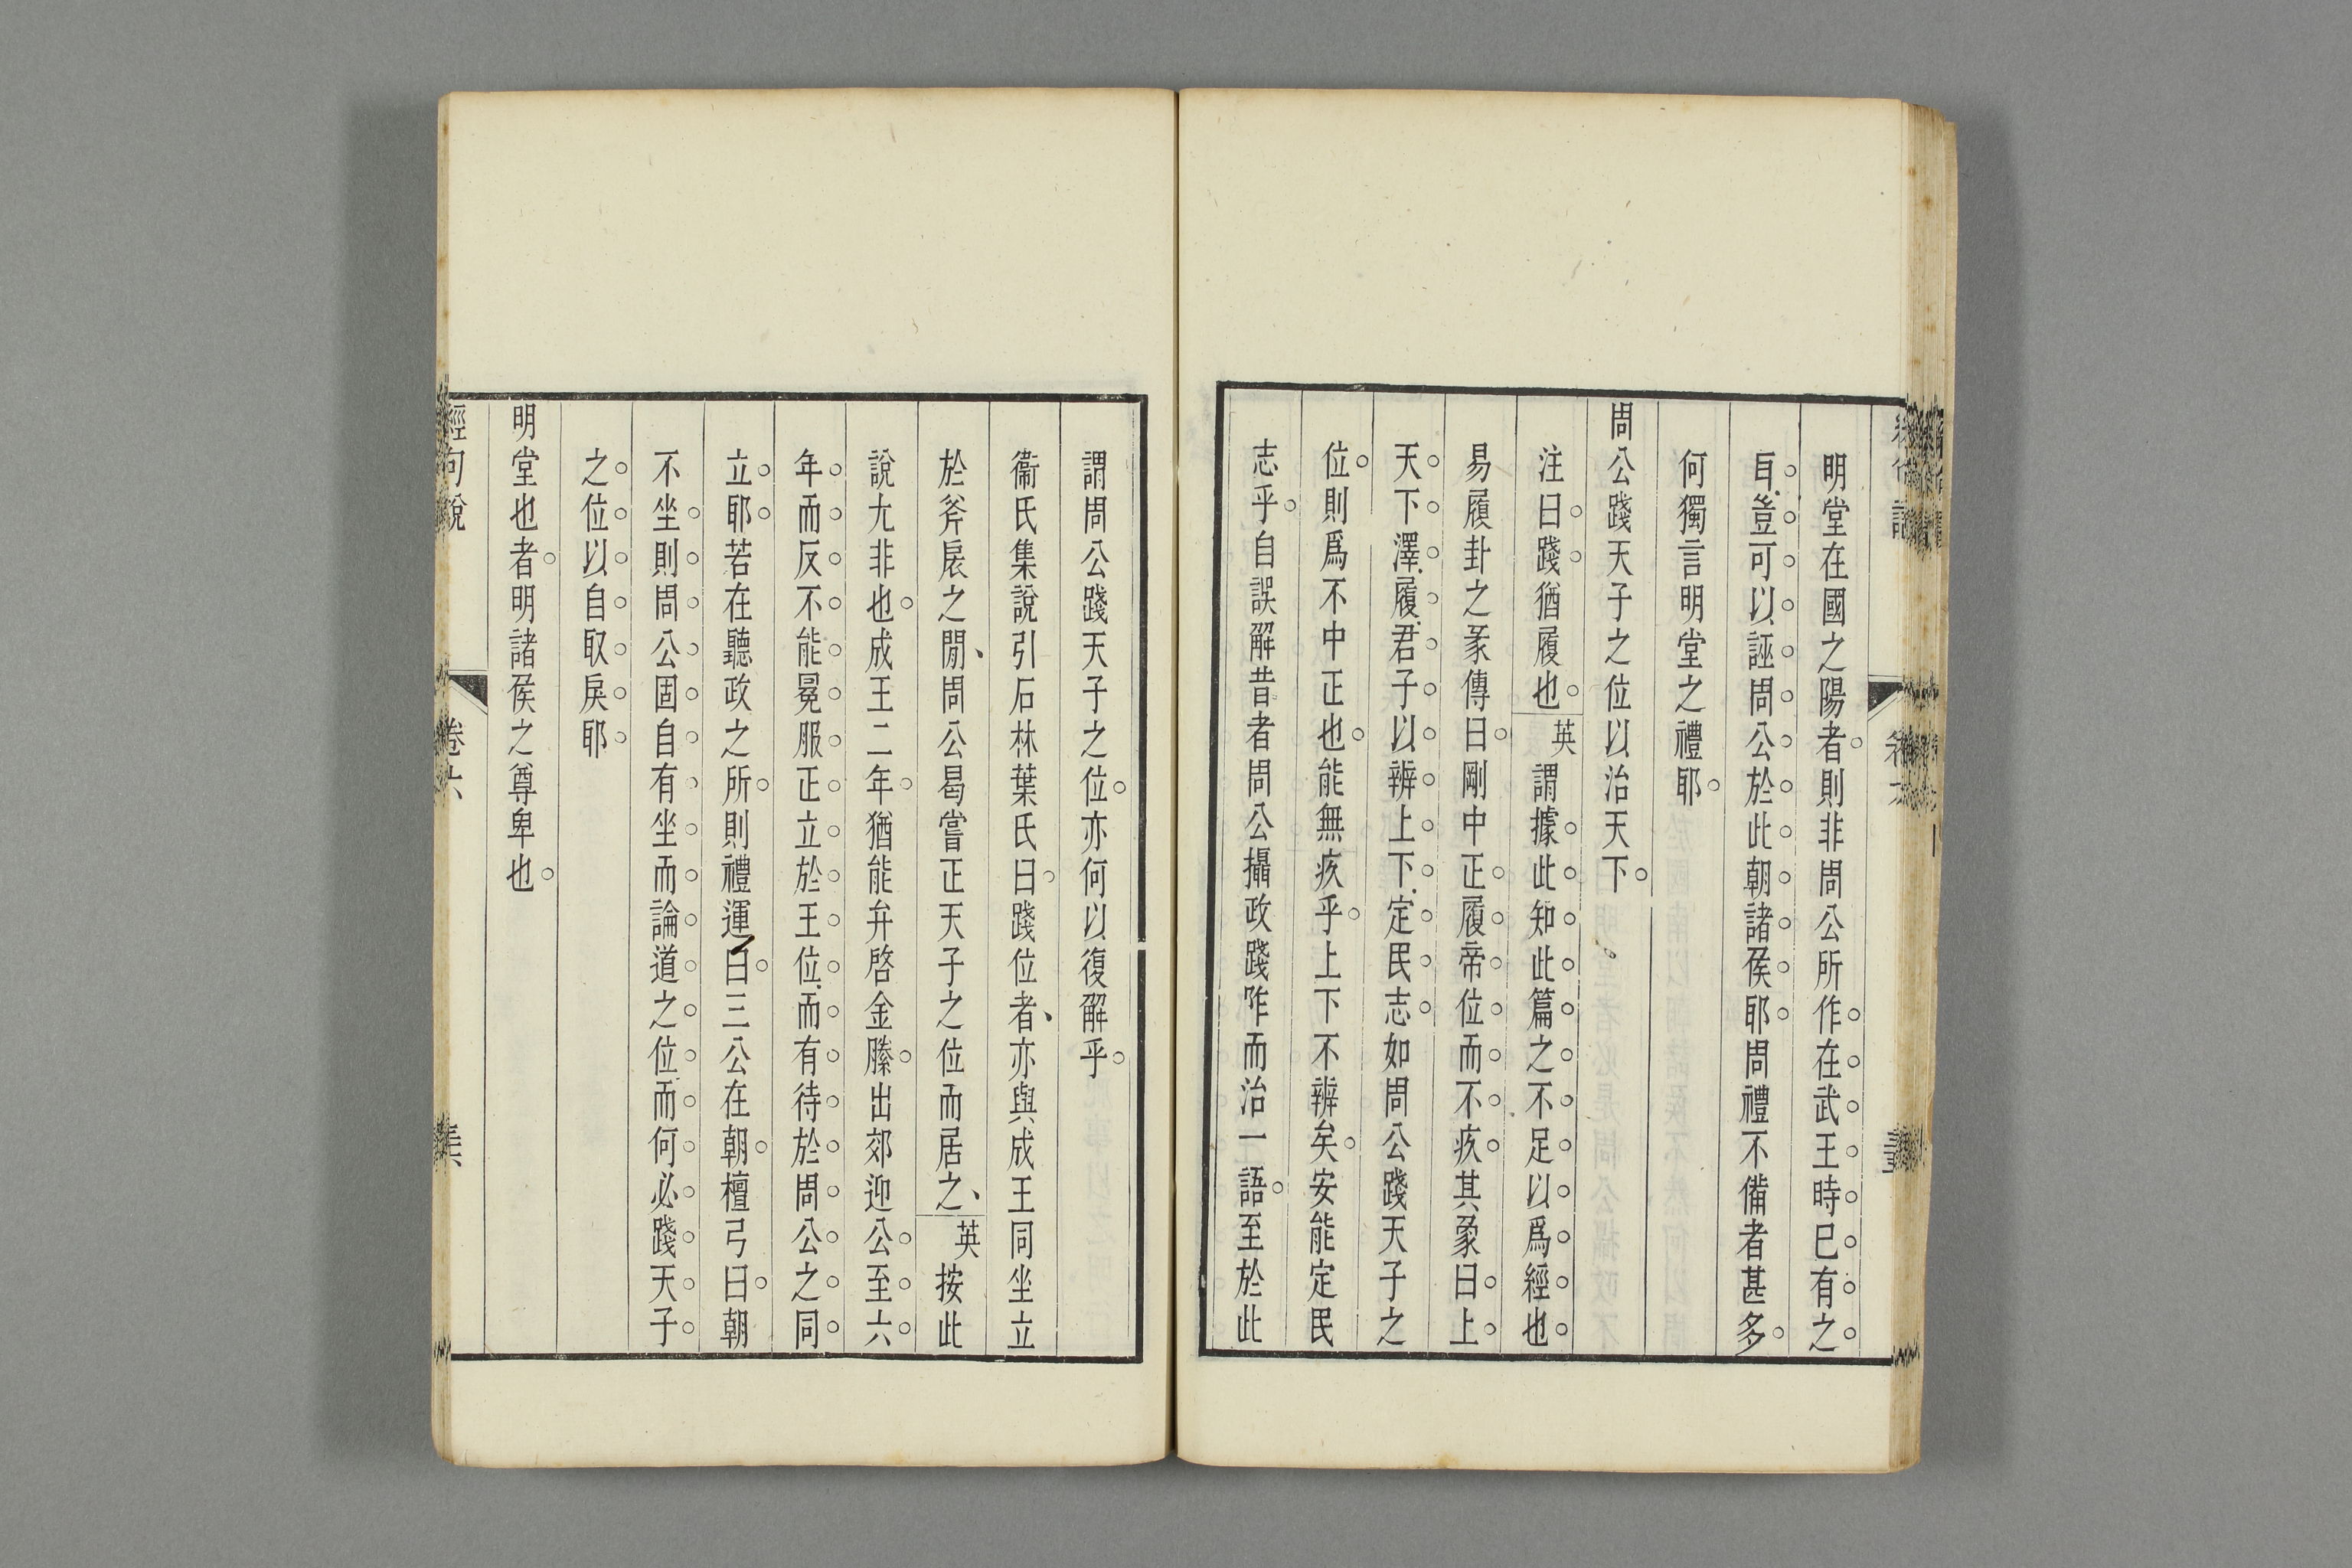 明堂在國之陽者。則非周公所作。在武王時已有之
耳。豈可以誣周公於此朝諸侯耶。周禮不備者甚多。
何獨言明堂之禮耶。
周公踐天子之位以治天下。
注曰。踐。猶履也。英謂據此。知此篇之不足以爲經也。
易履卦之彖傳曰。剛中正。履帝位而不疚。其象曰。上
天下澤履。君子以辨上下。定民志。如周公踐天子之
位。則爲不中正也。能無疚乎。上下不辨矣。安能定民
志乎。自誤解昔者周公攝政踐阼而治一語。至於此
謂周公踐天子之位。亦何以復解乎。
衞氏集說引石林葉氏曰。踐位者、亦與成王同坐立
於斧扆之閒、周公曷嘗正天子之位而居之、英按此
說尢非也。成王二年。猶能弁啓金縢。出郊迎公。至六。
年而反不能冕服正立於王位。而有待於周公之同
立耶。若在聽政之所。則禮運曰。三公在朝。檀弓曰。朝
不坐。則周公固自有坐而論道之位。而何必踐天子
之位以自取戾耶。
明堂也者。明諸侯之尊卑也。
經句說
卷六